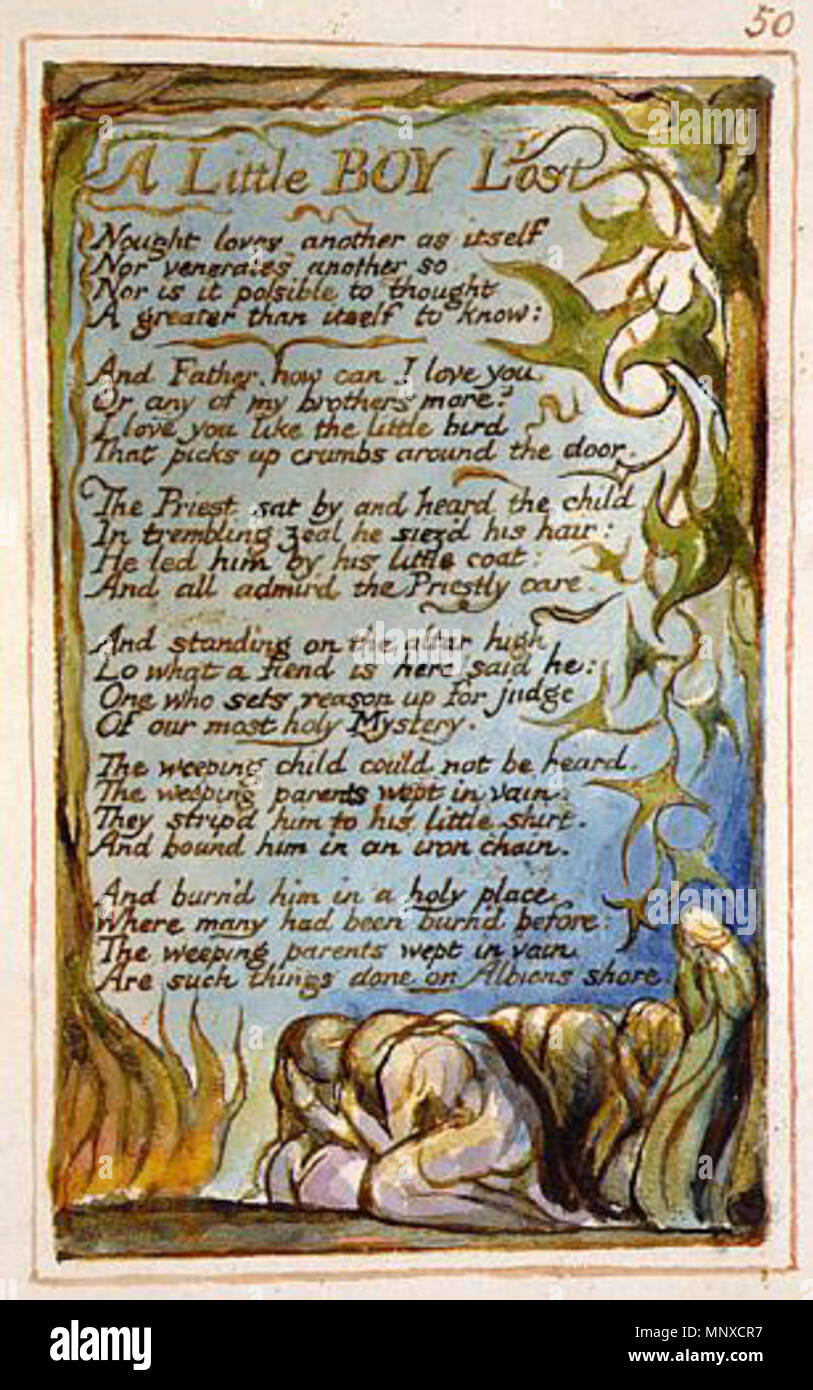 50
A Little BOY Lost
Nought loves another as itself
Nor venerates another so.
Nor is it possible to thought
A greater than itself to know:
And Father, how can I love you,
Or any of my brothers more?
I love you like the little bird
That picks up crumbs around the door.
The Priest sat by and heard the child,
In trembling zeal he siez'd his hair:
He led him by his little coat:
And all admir'd the Priestly care.
And standing on the altar high,
Lo what a fiend is here! said he:
One who sets reason up for judge
Of our most holy Mystery.
The weeping child could not be heard.
The weeping parents wept in vain:
They strip'd him to his little shirt.
And bound him in an iron chain.
And burn'd him in a holy place,
Where many had been burn'd before:
The weeping parents wept in vain.
Are such things done on Albions shore.
alamy
Image ID: MNXCR7
www.alamy.com